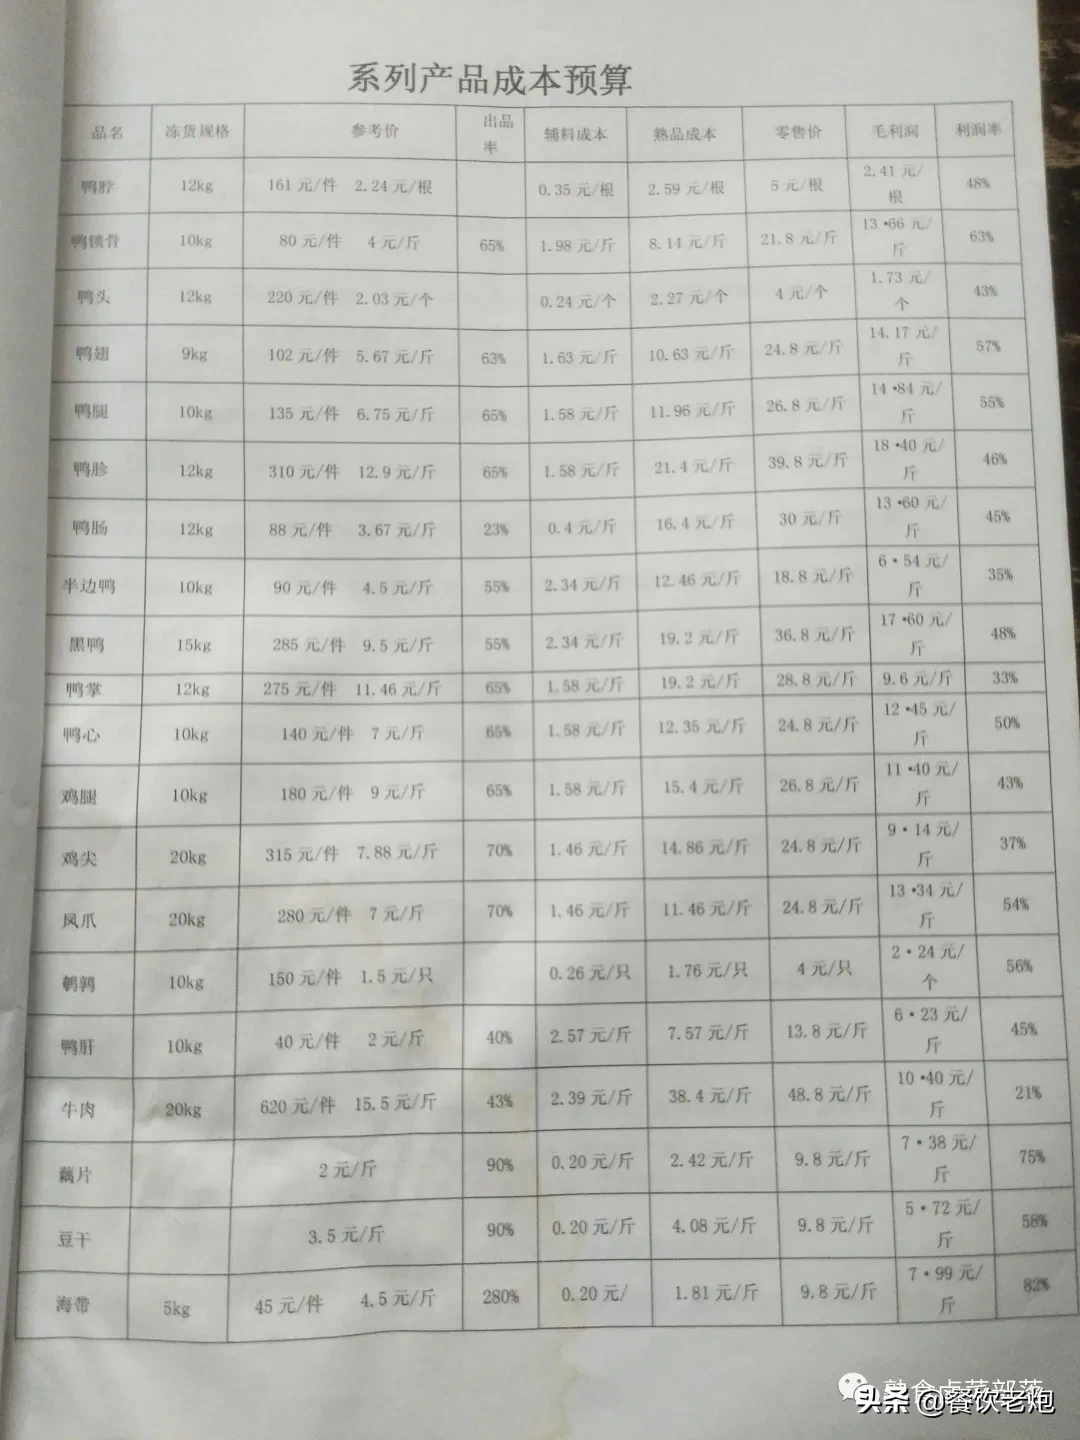 系列产品成本预算
品名 冻货规格 参考价 出品率 辅料成本 熟品成本 零售价 毛利润 利润率
鸭脖 12kg 161 元/件 2.24 元/根 0.35 元/根 2.59 元/根 5 元/根 2.41 元/根 48%
鸭锁骨 10kg 80 元/件 4 元/斤 65% 1.98 元/斤 8.14 元/斤 21.8 元/斤 13•66 元/斤 63%
鸭头 12kg 220 元/件 2.03 元/个 0.24 元/个 2.27 元/个 4 元/个 1.73 元/个 43%
鸭翅 9kg 102 元/件 5.67 元/斤 63% 1.63 元/斤 10.63 元/斤 24.8 元/斤 14.17 元/斤 57%
鸭腿 10kg 135 元/件 6.75 元/斤 65% 1.58 元/斤 11.96 元/斤 26.8 元/斤 14•84 元/斤 55%
鸭胗 12kg 310 元/件 12.9 元/斤 65% 1.58 元/斤 21.4 元/斤 39.8 元/斤 18•40 元/斤 46%
鸭肠 12kg 88 元/件 3.67 元/斤 23% 0.4 元/斤 16.4 元/斤 30 元/斤 13•60 元/斤 45%
半边鸭 10kg 90 元/件 4.5 元/斤 55% 2.34 元/斤 12.46 元/斤 18.8 元/斤 6•54 元/斤 35%
黑鸭 15kg 285 元/件 9.5 元/斤 55% 2.34 元/斤 19.2 元/斤 36.8 元/斤 17•60 元/斤 48%
鸭掌 12kg 275 元/件 11.46 元/斤 65% 1.58 元/斤 19.2 元/斤 28.8 元/斤 9.6 元/斤 33%
鸭心 10kg 140 元/件 7 元/斤 65% 1.58 元/斤 12.35 元/斤 24.8 元/斤 12•45 元/斤 50%
鸡腿 10kg 180 元/件 9 元/斤 65% 1.58 元/斤 15.4 元/斤 26.8 元/斤 11•40 元/斤 43%
鸡尖 20kg 315 元/件 7.88 元/斤 70% 1.46 元/斤 14.86 元/斤 24.8 元/斤 9•14 元/斤 37%
凤爪 20kg 280 元/件 7 元/斤 70% 1.46 元/斤 11.46 元/斤 24.8 元/斤 13•34 元/斤 54%
鹌鹑 10kg 150 元/件 1.5 元/只 0.26 元/只 1.76 元/只 4 元/只 2•24 元/个 56%
鸭肝 10kg 40 元/件 2 元/斤 40% 2.57 元/斤 7.57 元/斤 13.8 元/斤 6•23 元/斤 45%
牛肉 20kg 620 元/件 15.5 元/斤 43% 2.39 元/斤 38.4 元/斤 48.8 元/斤 10•40 元/斤 21%
藕片 2 元/斤 90% 0.20 元/斤 2.42 元/斤 9.8 元/斤 7•38 元/斤 75%
豆干 3.5 元/斤 90% 0.20 元/斤 4.08 元/斤 9.8 元/斤 5•72 元/斤 58%
海带 5kg 45 元/件 4.5 元/斤 280% 0.20 元/ 1.81 元/斤 9.8 元/斤 7•99 元/斤 82%
熟食卤菜部落
头条 @餐饮老炮